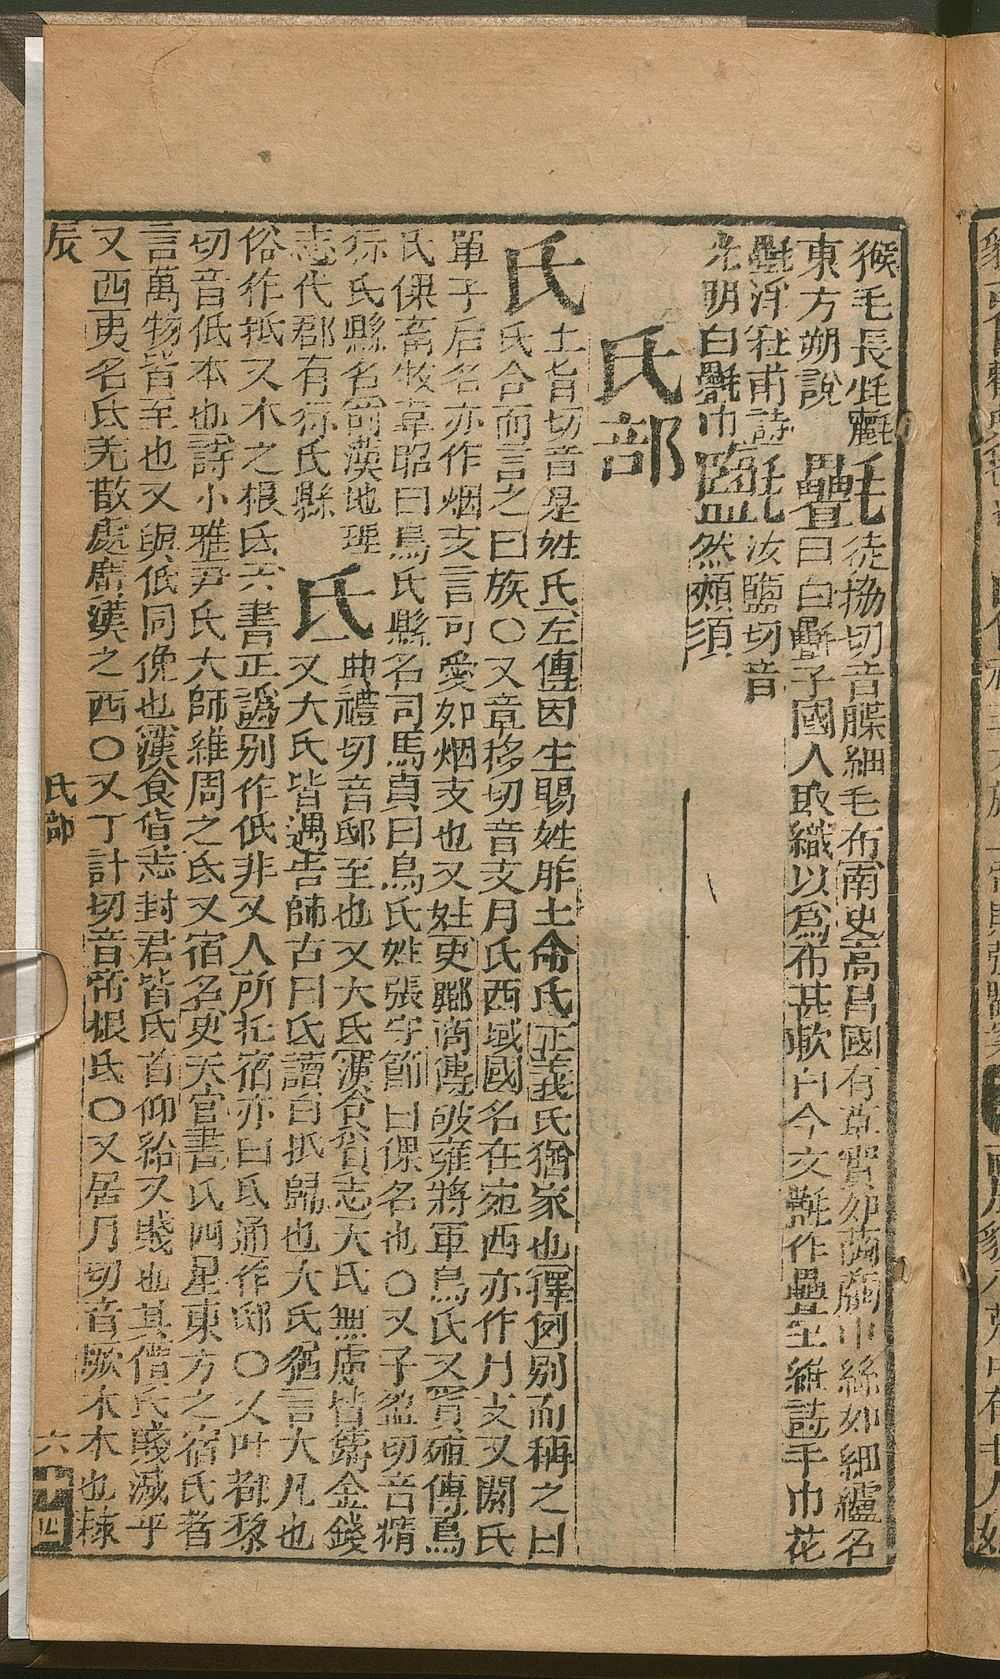 猴毛長㲝䶱㲲徒協切音牒細毛布南史高昌國有草實如繭繭中絲如細纑名
東方朔說疊曰白㲲子國人取織以爲布甚軟白今文㲲作疊王維詩手巾花
㲲淨杜甫詩㲯汝鹽切音
光明白㲲巾㿼然頰須
氏部
氏上旨切音是姓氏左傳因生賜姓胙土命氏正義氏猶家也釋例別而稱之曰
氏合而言之曰族〇又章移切音支月氏西域國名在宛西亦作月支又閼氏
單于后名亦作烟支言可愛如烟支也又姓史酈商傳破雍將軍烏氏又貨殖傳烏
氏倮畜牧韋昭曰烏氏縣名司馬貞曰烏氏姓張守節曰倮名也〇又子盈切音精
狋氏縣名前漢地理氐典禮切音邸至也又大氐漢食貨志大氐無慮皆鑄金錢
志代郡有狋氏縣又大氐皆遇告師古曰氐讀曰抵歸也大氐猶言大凡也
俗作抵又木之根氐六書正譌別作低非又人所托宿亦曰氐通作邸〇又叶都黎
切音低本也詩小雅尹氏大師維周之氐又宿名史天官書氐四星東方之宿氐者
言萬物皆至也又與低同俛也漢食貨志封君皆氐首仰給又賤也其價氐賤減平
又西夷名氐羌散處廣漢之西〇又丁計切音帝根氐〇又居月切音厥木本也隸
辰 氏部 六 十四